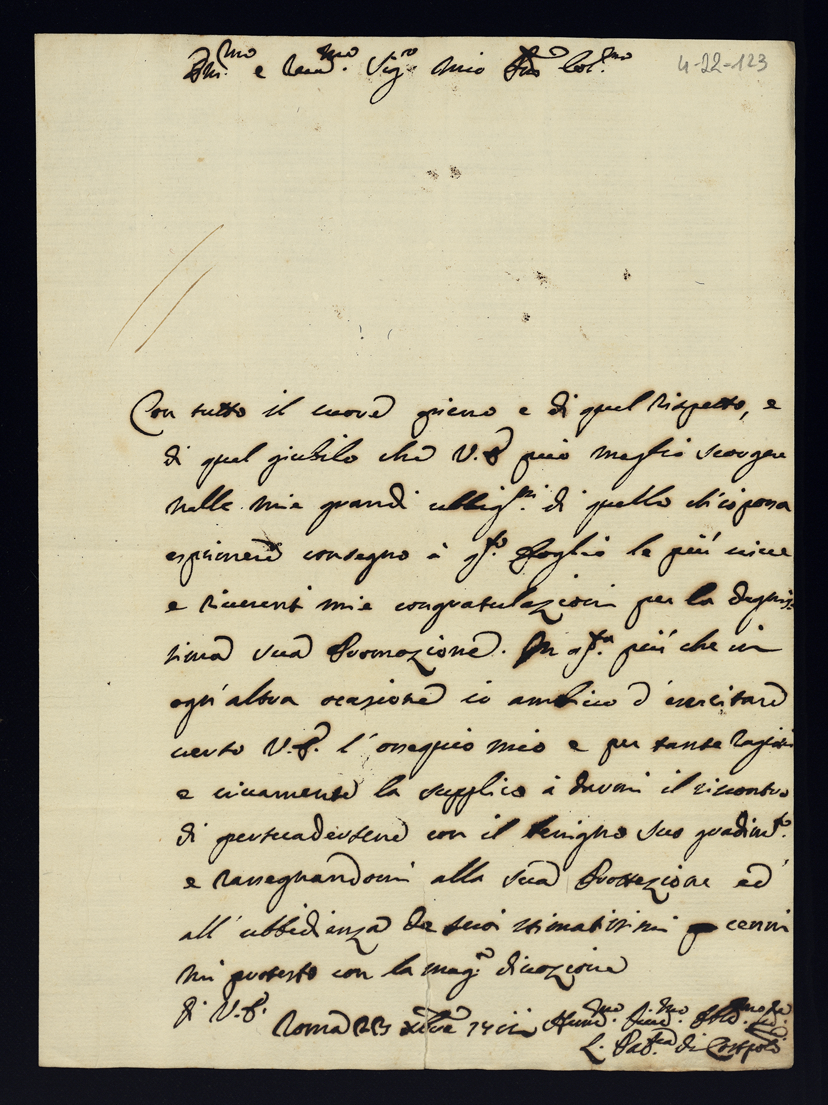 Ill.mo e Rev.mo Sig.re mio P.ne Col.mo
4-22-123
Con tutto il cuore pieno e di quel rispetto, e
di quel giubilo che V.S. può meglio scorgere
nelle mie grandi obblig.ni di quello ch'io possa
esprimere consegno à q.to foglio le più vive
e riverenti mie congratulazioni per la degnis
sima sua Promozione. In q.ta più che in
ogn'altra ocasione io ambico d'esercitare
verso V.S. l'ossequio mio e per tante ragioni
e vivamente la supplico à darmi il riscontro
di persuadersene con il benigno suo gradim.to
e rassegnandomi alla sua Protezione ed
all'ubbidienza de suoi stimatissimi cenni
mi protesto con la mag.re divozione
di V.S.
Roma 23